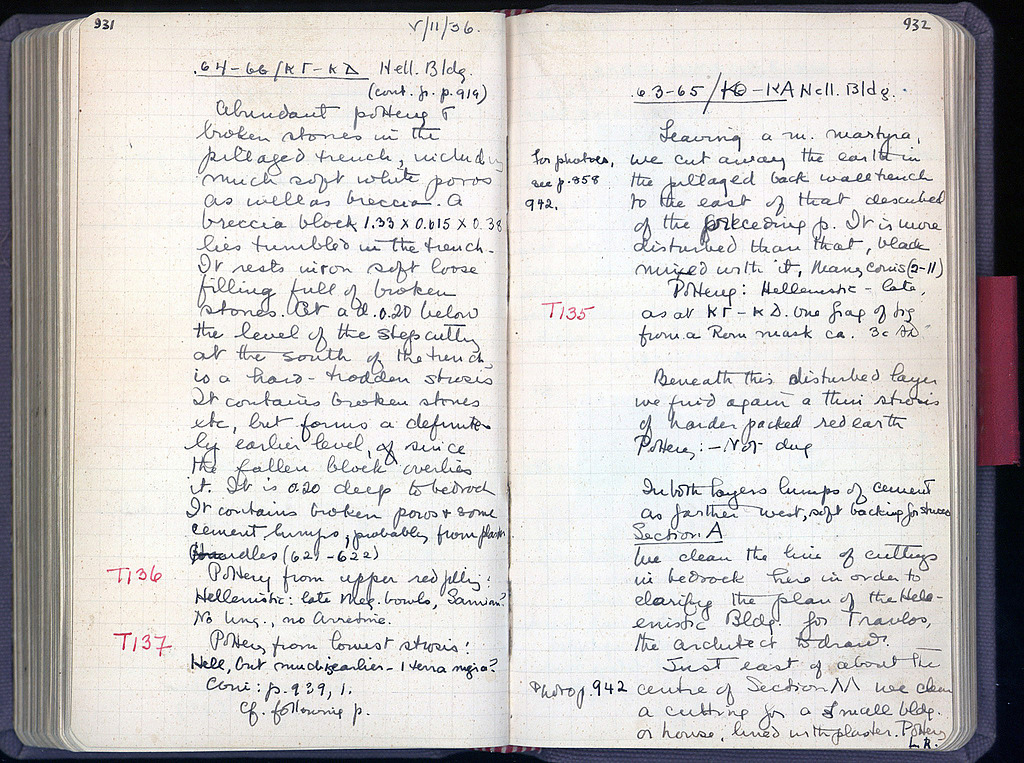 931
V/11/36.
64-66/ΚΓ-ΚΔ Hell. Bldg.
(cont. fr. p. 919)
Abundant pottery &
broken stones in the
pillaged trench, including
much soft white poros
as well as breccia. A
breccia block 1.33 x 0.615 x 0.38
lies tumbled in the trench.
It rests in on soft loose
filling full of broken
stones. At a d. 0.20 below
the level of the steps cutting
at the south of the trench,
is a hard-trodden strosis
It contains broken stones
etc, but forms a definite-
ly earlier level, of since
the fallen block overlies
it. It is 0.20 deep to bedrock
It contains broken poros & some
cement lumps, probably from plaster
Handles (621-622)
T136
Pottery from upper red filling:
Hellenistic: late Meg. bowls, Samian?
No Ung., no Arretine.
T137
Pottery from lowest strosis:
Hell, but much earlier - 1 terra nigra?
Coin: p. 939, 1.
Cf. following p.
932
63-65/ΚΘ-ΚΛ Hell. Bldg.
Leaving a m. martyra,
For photos,
see p. 858
942.
we cut away the earth in
the pillaged back wall trench
to the east of that described
of the preceding p. It is more
disturbed than that, black
mixed with it, many coins (2-11)
T135
Pottery: Hellenistic - late,
as at ΚΓ-ΚΔ. One frag of fig
from a Rom mask ca. 3c AD
Beneath this disturbed layer
we find again a thin strosis
of harder packed red earth
Pottery: - Not dug
In both layers lumps of cement
as farther west, soft backing for stucco
Section A
We clean the line of cuttings
in bedrock here in order to
clarify the plan of the Hell-
enistic Bldg. for Travlos,
the architect to draw.
Just east of about the
Photo p. 942
centre of Section M we clean
a cutting for a small bldg.
or house, lined with plaster. Pottery
L.R.